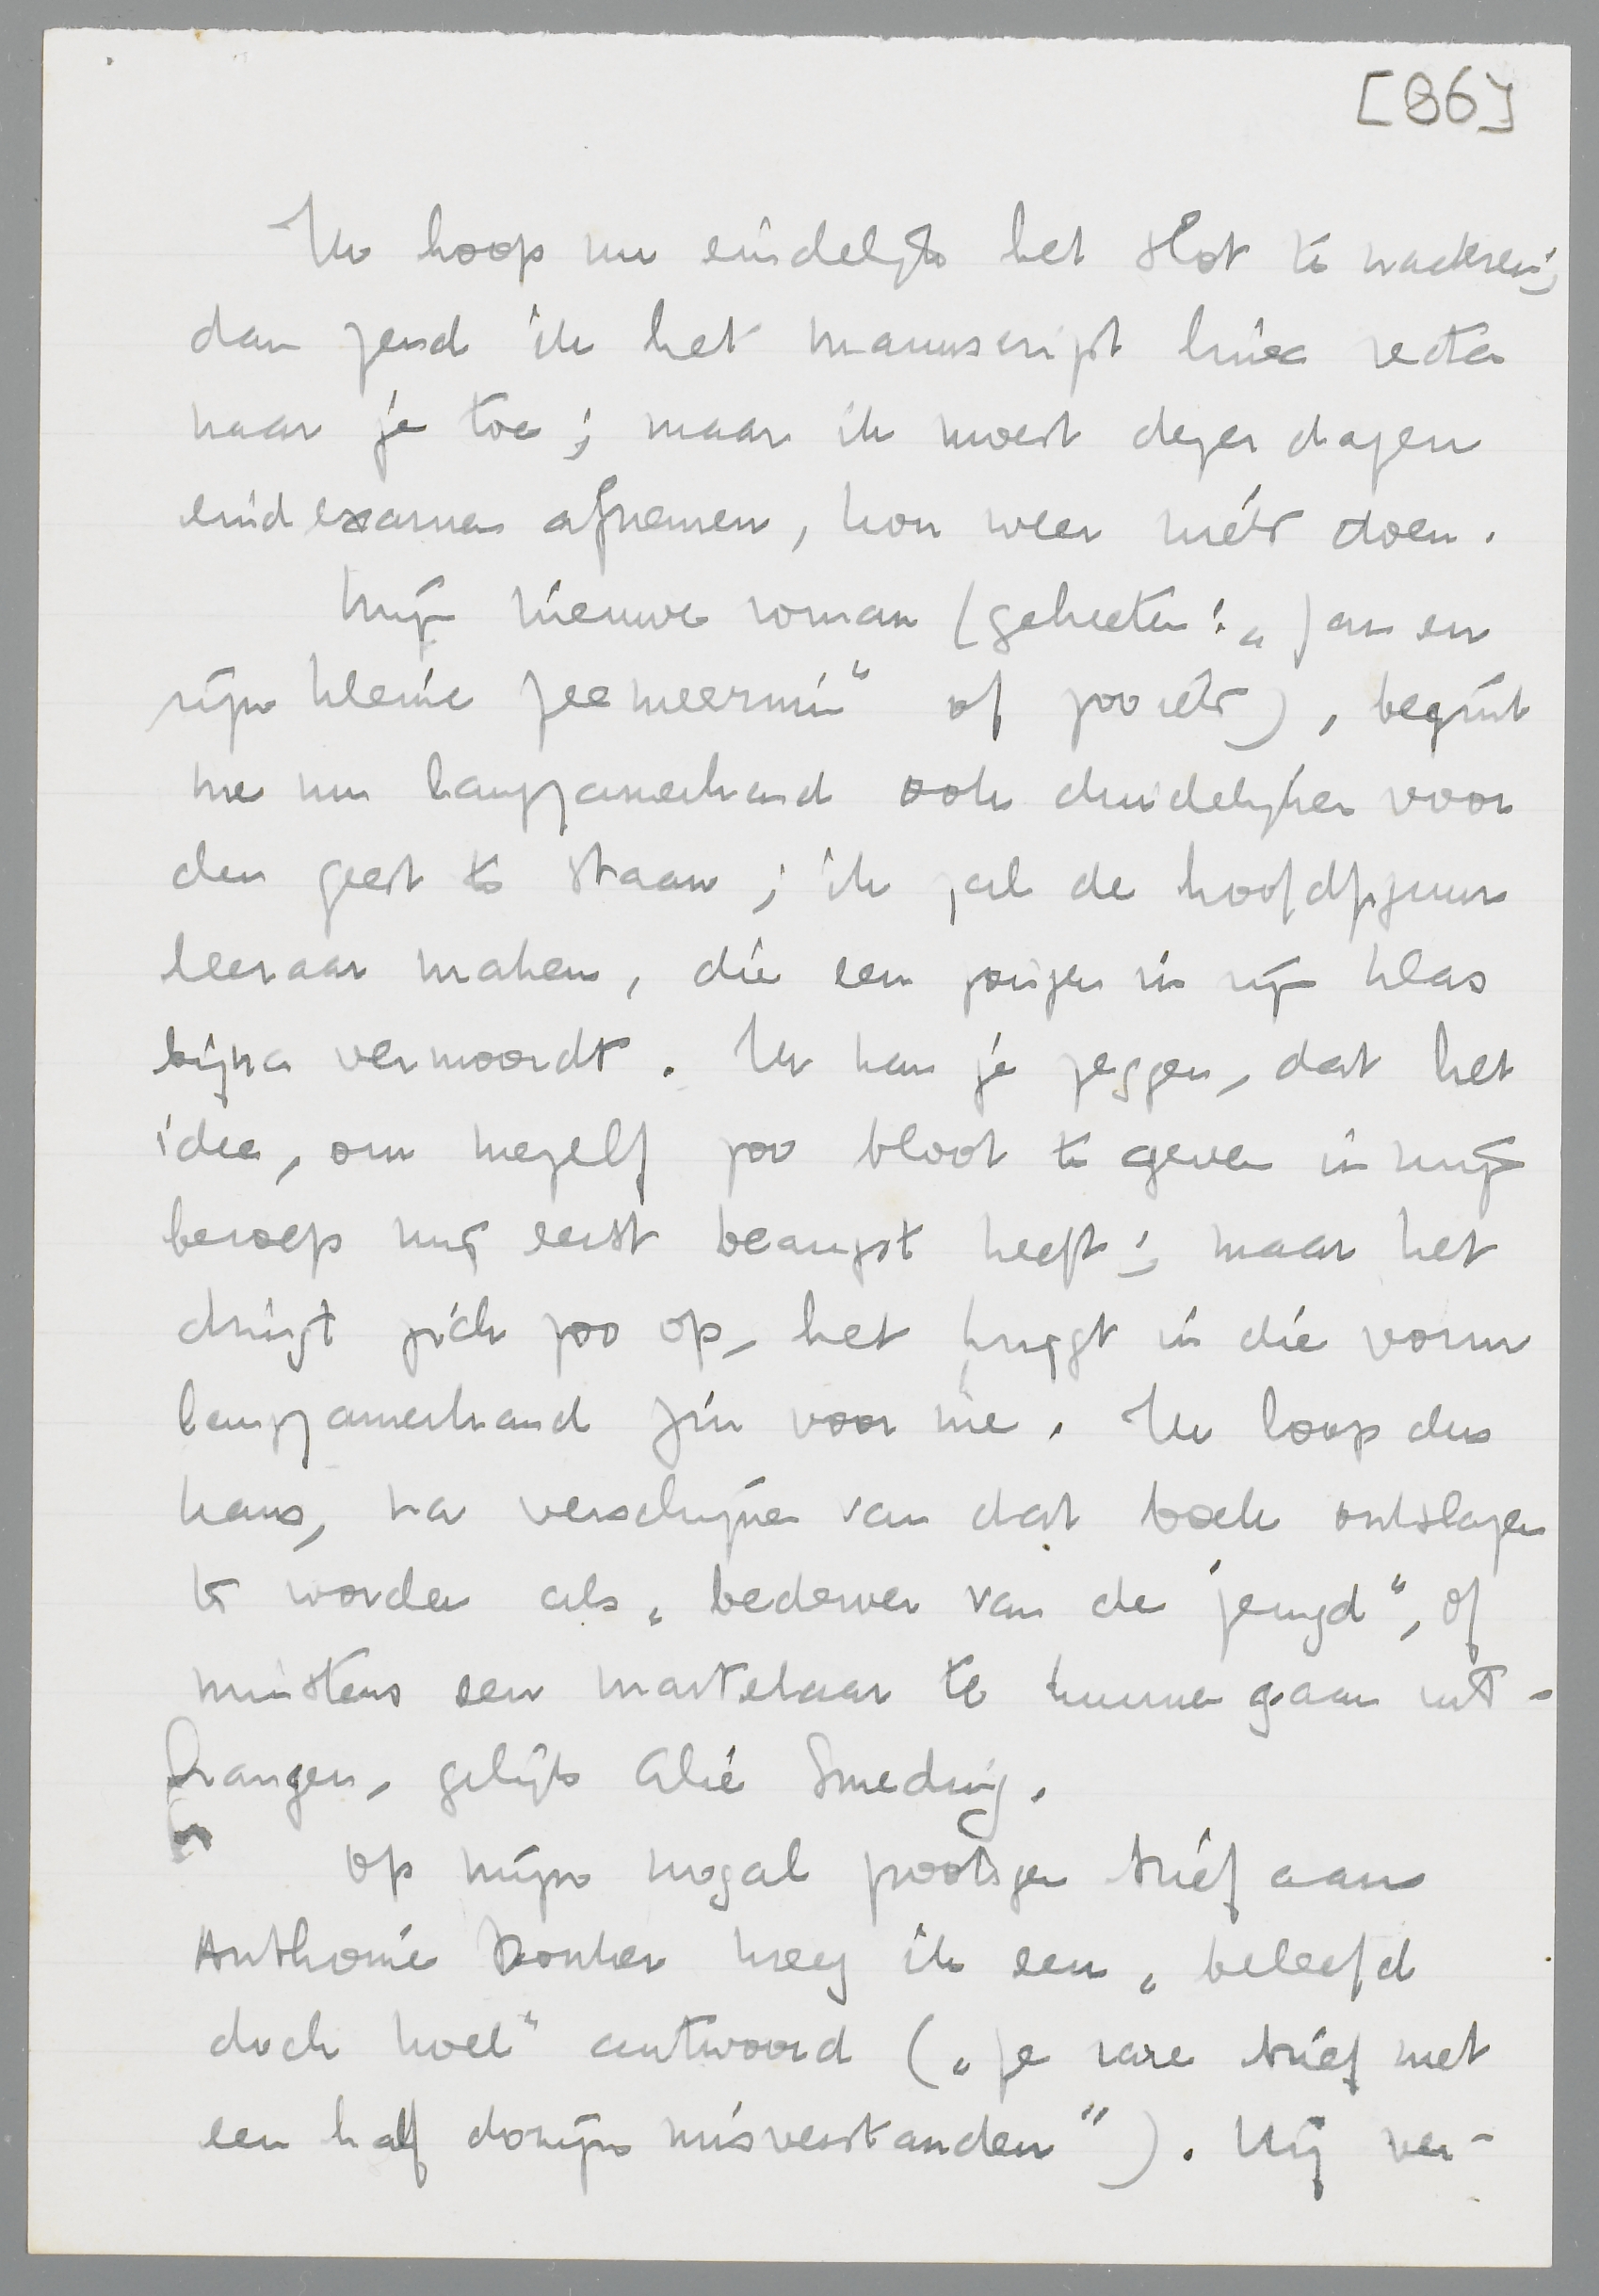 [86]
Ik hoop nu eindelijk het slot te maken;
dan zend ik het manuscript linea recta
naar je toe; maar ik moest dezer dagen
eindexamen afnemen, kon weer niets doen.
Mijn nieuwe roman (geheeten: „Jan en
zijn kleine zeemeermin" of zooiets), begint
me nu langzamerhand ook duidelijker voor
den geest te staan; ik zal de hoofdfiguur
leeraar maken, die een jongen in zijn klas
bijna vermoordt. Ik kan je zeggen, dat het
idee, om mezelf zoo bloot te geven in mijn
beroep mij eerst beangst heeft; maar het
dringt zich zoo op, het krijgt in die vorm
langzamerhand zin voor me. Ik loop dus
kans, na verschijnen van dat boek ontslagen
te worden als „bederver van de jeugd", of
minstens een martelaar te kunnen gaan uit-
hangen, gelijk Alie Smeding.
Op mijn nogal prootsjen brief aan
Anthonie Donker kreeg ik een „beleefd
doch koel" antwoord („Je rare brief met
een half dozijn misverstanden"). Hij ver-